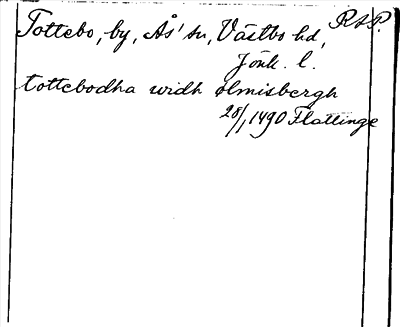 Tottebo, by, Ås' sn, Västbo hd, RAP.
Jönk. l.
tottebodha widh olmisbergh
28/1 1490 Flattinge